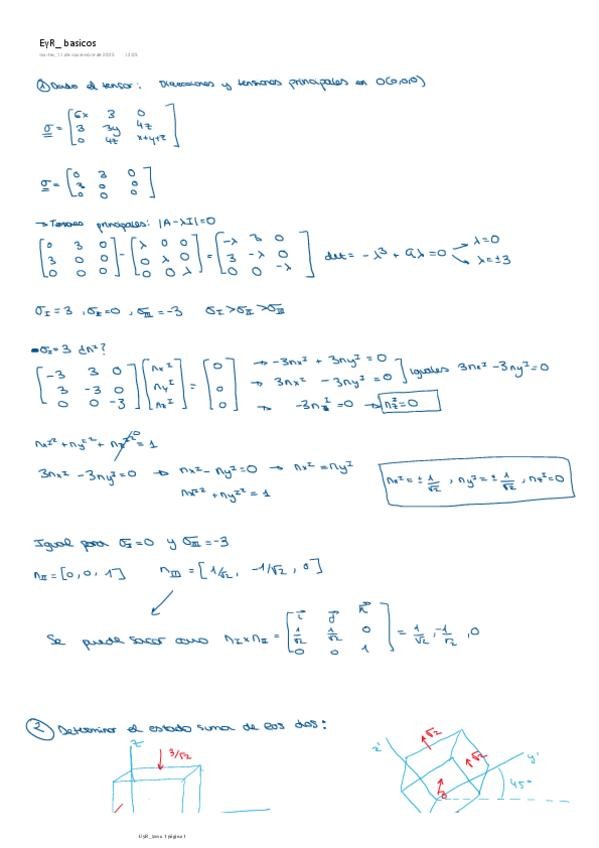 EyR_ basicos
① Dado el tensor: Direcciones y tensiones principales en O(0,0,0)
σ = [6x 3 0
3 3y 4z
0 4z x+y+z]
σ = [0 3 0
3 0 0
0 0 0]
→ Tensiones principales: |A-λI|=0
[0 3 0; 3 0 0; 0 0 0] - [λ 0 0; 0 λ 0; 0 0 λ] = [-λ 3 0; 3 -λ 0; 0 0 -λ] det = -λ³ + 9λ = 0 → λ=0 → λ=±3
σI = 3, σII = 0, σIII = -3 σI > σII > σIII
σI = 3 ¿nI?
[-3 3 0; 3 -3 0; 0 0 -3] [nxI; nyI; nzI] = [0; 0; 0]
→ -3nxI + 3nyI = 0
→ 3nxI - 3nyI = 0 ] iguales 3nxI - 3nyI = 0
→ -3nzI = 0 → nzI = 0
nxI² + nyI² + nzI² = 1
3nxI - 3nyI = 0 → nxI - nyI = 0 → nxI = nyI
nxI² + nyI² = 1
nxI = ± 1/√2, nyI = ± 1/√2, nzI = 0
Igual para σII = 0 y σIII = -3
nII = [0, 0, 1] nIII = [1/√2, -1/√2, 0]
Se puede sacar como nI x nII = [i j k; 1/√2 1/√2 0; 0 0 1] = 1/√2, -1/√2, 0
② Determinar el estado suma de los dos:
z 3/√2
z' √2 √2 y' 45°